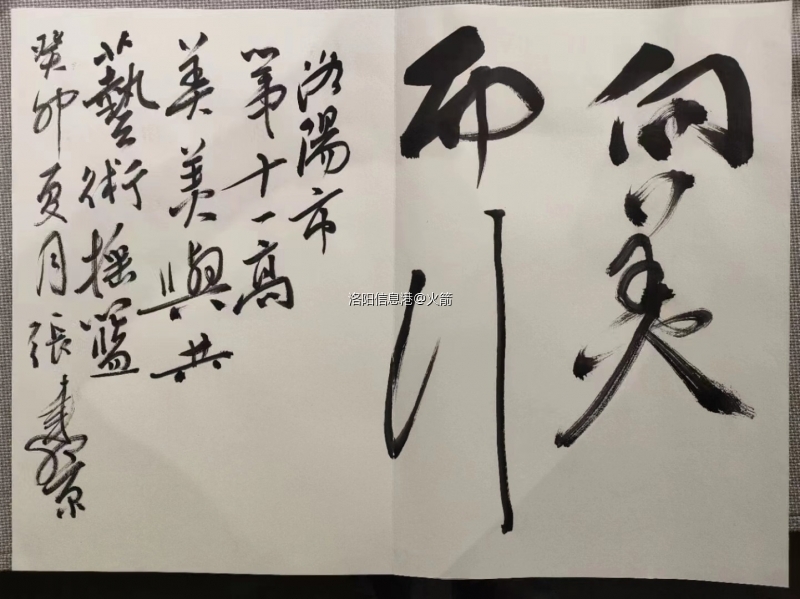 向美
而行
洛陽市
第十一高
美美與共
藝術摇籃
癸卯夏月張
洛阳信息港@火箭